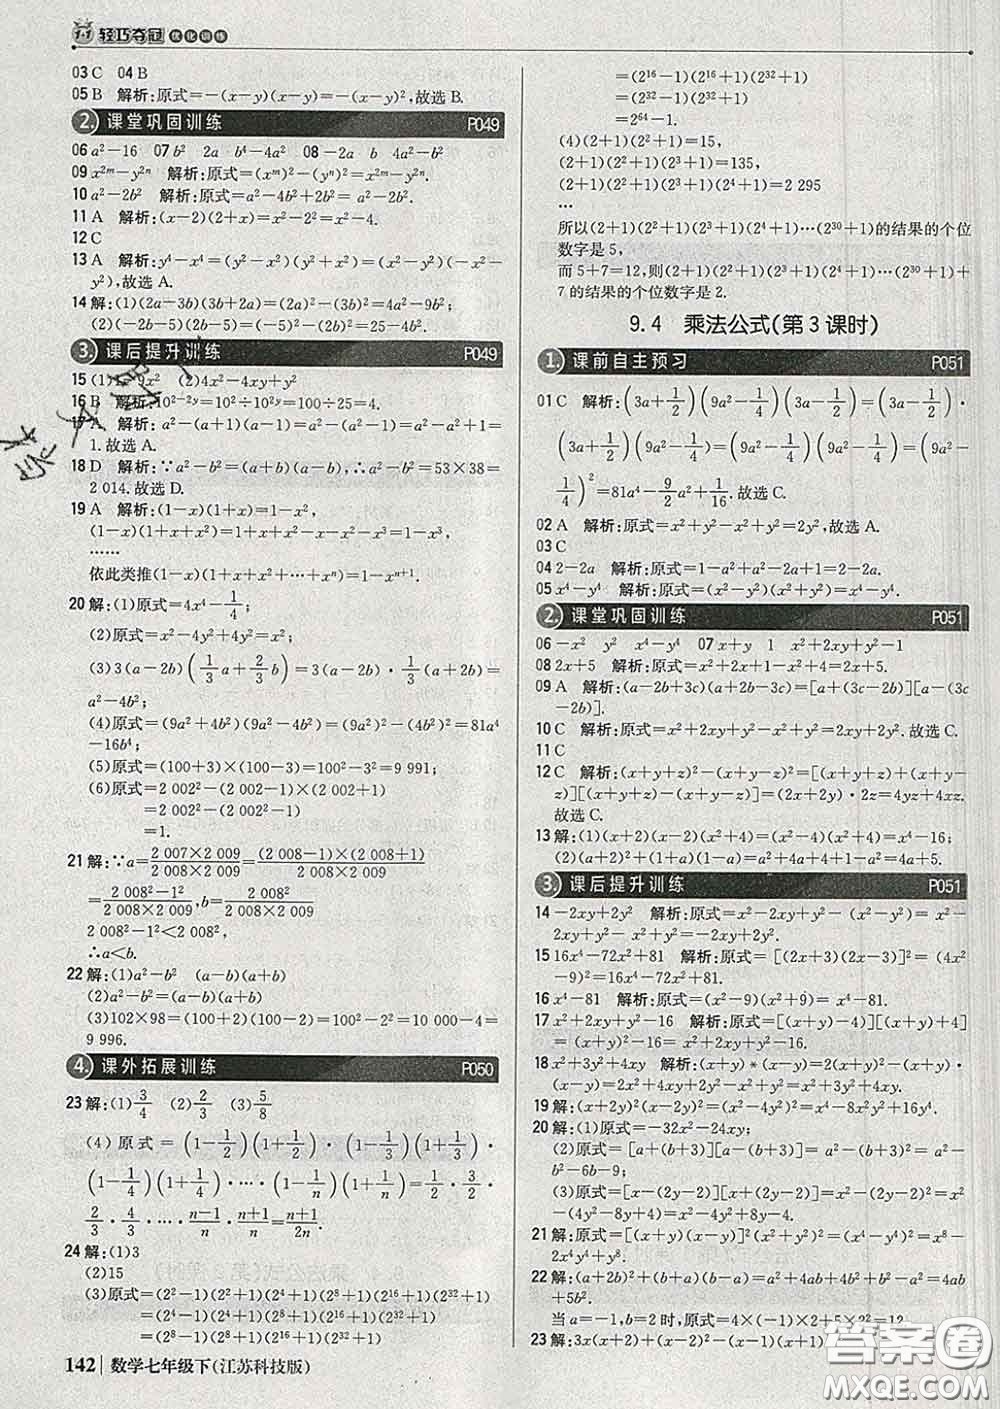 1+1 轻巧夺冠 优化训练
03 C　04 B
05 B　解析:原式=-(x-y)(x-y)=-(x-y)²,故选 B.
2. 课堂巩固训练 P049
06 a²-16　07 b²　2a　b⁴-4a²　08 -2a　b　4a²-b²
09 x²ᵐ-y²ⁿ　解析:原式=(xᵐ)²-(yⁿ)²=x²ᵐ-y²ⁿ.
10 a²-2b²　解析:原式=a²-4b²+2b²=a²-2b².
11 A　解析:(x-2)(2+x)=x²-2²=x²-4.
12 C
13 A　解析:y⁴-x⁴=(y²-x²)(y²+x²)=(x²-y²)(-x²-
y²),故选 A.
14 解:(1)(2a-3b)(3b+2a)=(2a)²-(3b)²=4a²-9b²;
(2)(-2b-5)(2b-5)=(-5)²-(2b)²=25-4b².
3. 课后提升训练 P049
15 (1)1-9x²　(2)4x²-4xy+y²
16 B　解析:10²⁻²ʸ=10²÷10²ʸ=100÷25=4.
17 A　解析:a²-(a+1)(a-1)=a²-(a²-1)=a²-a²+1=
1.故选 A.
18 D　解析:∵a²-b²=(a+b)(a-b),∴a²-b²=53×38=
2 014.故选 D.
19 A　解析:(1-x)(1+x)=1-x²,
(1-x)(1+x+x²)=1+x+x²-x-x²-x³=1-x³,
……
依此类推(1-x)(1+x+x²+…+xⁿ)=1-xⁿ⁺¹.
20 解:(1)原式=4x⁴-1/4;
(2)原式=x²-4y²+4y²=x²;
(3)3(a-2b)(1/3a+2/3b)=3(a-2b)·1/3(a+2b)=
a²-4b²;
(4)原式=(9a²+4b²)(9a²-4b²)=(9a²)²-(4b²)²=81a⁴
-16b⁴;
(5)原式=(100+3)(100-3)=100²-3²=9 991;
(6)原式=2 002²-(2 002-1)(2 002+1)
=2 002²-(2 002²-1)
=1.
21 解:∵a=2 007×2 009/2 008×2 009=(2 008-1)×(2 008+1)/2 008×2 009=
2 008²-1²/2 008×2 009,b=2 008²/2 008×2 009,
2 008²-1²<2 008²,
∴a<b.
22 解:(1)a²-b²　(a-b)(a+b)
(2)a²-b²=(a-b)(a+b)
(3)102×98=(100+2)(100-2)=100²-2²=10 000-4=
9 996.
4. 课外拓展训练 P050
23 解:(1)3/4　(2)2/3　(3)5/8
(4)原式=(1-1/2)(1+1/2)·(1-1/3)(1+1/3)·
(1-1/4)(1+1/4)·…·(1-1/n)(1+1/n)=1/2·3/2·
2/3·4/3·…·n-1/n·n+1/n=n+1/2n.
24 解:(1)3
(2)15
(3)原式=(2²-1)(2²+1)(2⁴+1)(2⁸+1)(2¹⁶+1)(2³²+1)
=(2⁴-1)(2⁴+1)(2⁸+1)(2¹⁶+1)(2³²+1)
=(2⁸-1)(2⁸+1)(2¹⁶+1)(2³²+1)
142 数学七年级下(江苏科技版)
=(2¹⁶-1)(2¹⁶+1)(2³²+1)
=(2³²-1)(2³²+1)
=2⁶⁴-1.
(4)(2+1)(2²+1)=15,
(2+1)(2²+1)(2³+1)=135,
(2+1)(2²+1)(2³+1)(2⁴+1)=2 295
…
所以(2+1)(2²+1)(2³+1)(2⁴+1)…(2³⁰+1)的结果的个位
数字是 5,
而 5+7=12,则(2+1)(2²+1)(2³+1)(2⁴+1)…(2³⁰+1)+
7 的结果的个位数字是 2.
9.4　乘法公式(第 3 课时)
1. 课前自主预习 P051
01 C　解析:(3a+1/2)(9a²-1/4)(3a-1/2)=(3a-1/2)·
(3a+1/2)(9a²-1/4)=(9a²-1/4)(9a²-1/4)=(9a²-
1/4)²=81a⁴-9/2a²+1/16.故选 C.
02 A　解析:原式=x²+y²-x²+y²=2y²,故选 A.
03 C
04 2-2a　解析:原式=1-a²+a²-2a+1=2-2a.
05 x⁴-y⁴　解析:原式=(x²-y²)(x²+y²)=x⁴-y⁴.
2. 课堂巩固训练 P051
06 -x²　y²　x⁴-y⁴　07 x+y　1　x²+2xy+y²-1
08 2x+5　解析:原式=x²+2x+1-x²+4=2x+5.
09 A　解析:(a-2b+3c)(a+2b-3c)=[a+(3c-2b)][a-(3c
-2b)].
10 C　解析:原式=x²+2xy+y²-x²-y²=2xy.故选 C.
11 C
12 C　解析:(x+y+z)²-(x+y-z)²=[(x+y+z)+(x+y-
z)][(x+y+z)-(x+y-z)]=(2x+2y)·2z=4yz+4xz.
故选 C.
13 解:(1)(x+2)(x-2)(x²+4)=(x²-4)(x²+4)=x⁴-16;
(2)(a+2)²+(1+a)(1-a)=a²+4a+4+1-a²=4a+5.
3. 课后提升训练 P051
14 -2xy+2y²　解析:原式=x²-2xy+y²-(x²-y²)=x²-
2xy+y²-x²+y²=-2xy+2y².
15 16x⁴-72x²+81　解析:原式=[(2x+3)(2x-3)]²=(4x²
-9)²=16x⁴-72x²+81.
16 x⁴-81　解析:原式=(x²-9)(x²+9)=x⁴-81.
17 x²+2xy+y²-16　解析:原式=[(x+y)-4)][(x+y)+4]
=(x+y)²-16=x²+2xy+y²-16.
19 解:(x+2y)²(x-2y)²=(x²-4y²)²=x⁴-8x²y²+16y⁴.
20 解:(1)原式=-32x²-24xy;
(2)原式=[a+(b+3)][a-(b+3)]=a²-(b+3)²=a²-
b²-6b-9;
(3)原式=[x-(2y-2)][x+(2y-2)]=x²-(2y-2)²=x²
-(4y²-8y+4)=x²-4y²+8y-4.
21 解:原式=[(x+y)(x-y)]²=(x²-y²)²=(x²)²-
2x²y²+(y²)²=x⁴-2x²y²+y⁴.
22 解:(a+2b)²+(b+a)(b-a)=a²+4ab+4b²+b²-a²=4ab
+5b².
当 a=-1,b=2 时,原式=4×(-1)×2+5×2²=12.
答案圈
MXQE.COM